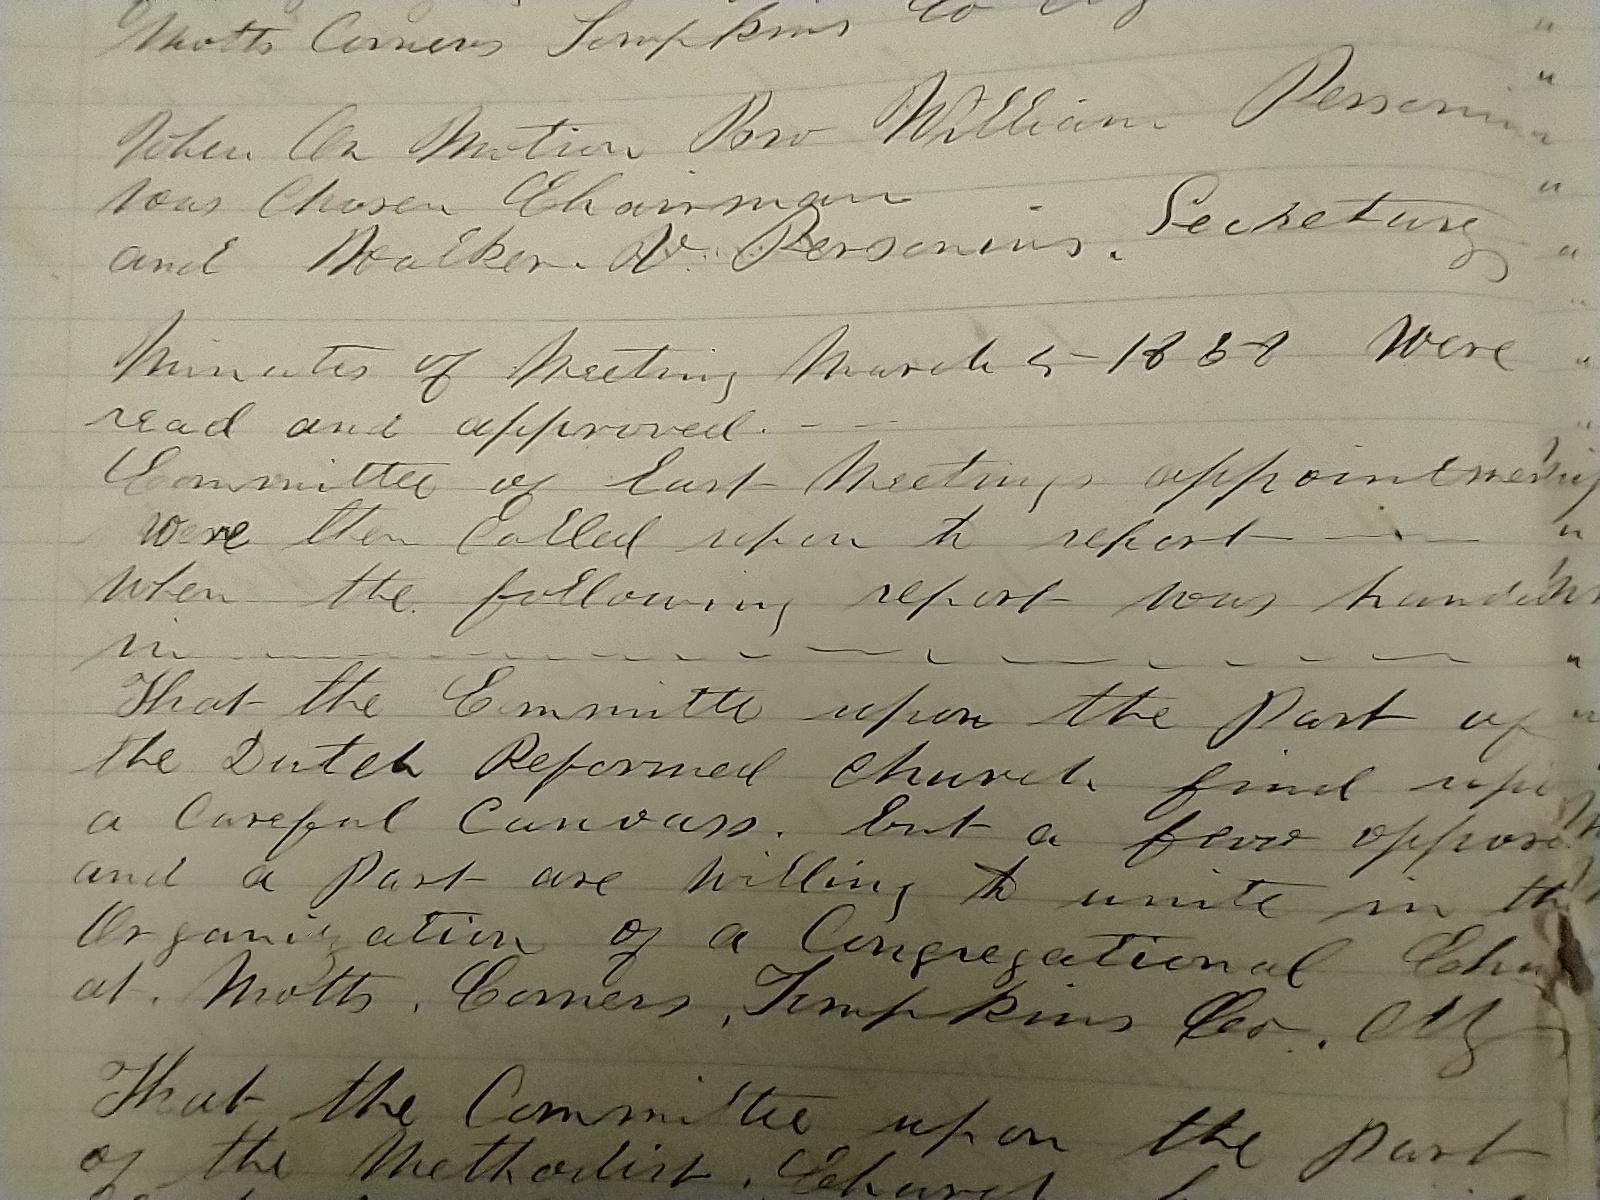 Motts Corners Tompkins Co
When On Motion Bro William Personius
was Chosen Chairman
and Walker V. Personius. Secretary
Minutes of Meeting March 5 1868 Were
read and approved.
Committee of Last Meetings appointment
were then Called upon to report
when the following report was handed
in
That the Committe upon the Part of
the Dutch Reformed Church find upon
a Careful Canvass. but a few oppose
and a Part are willing to unite in the
Organization of a Congregational Chu
at. Motts. Corners, Tompkins Co. NY
That the Committee upon the Part
of the Methodist. Church